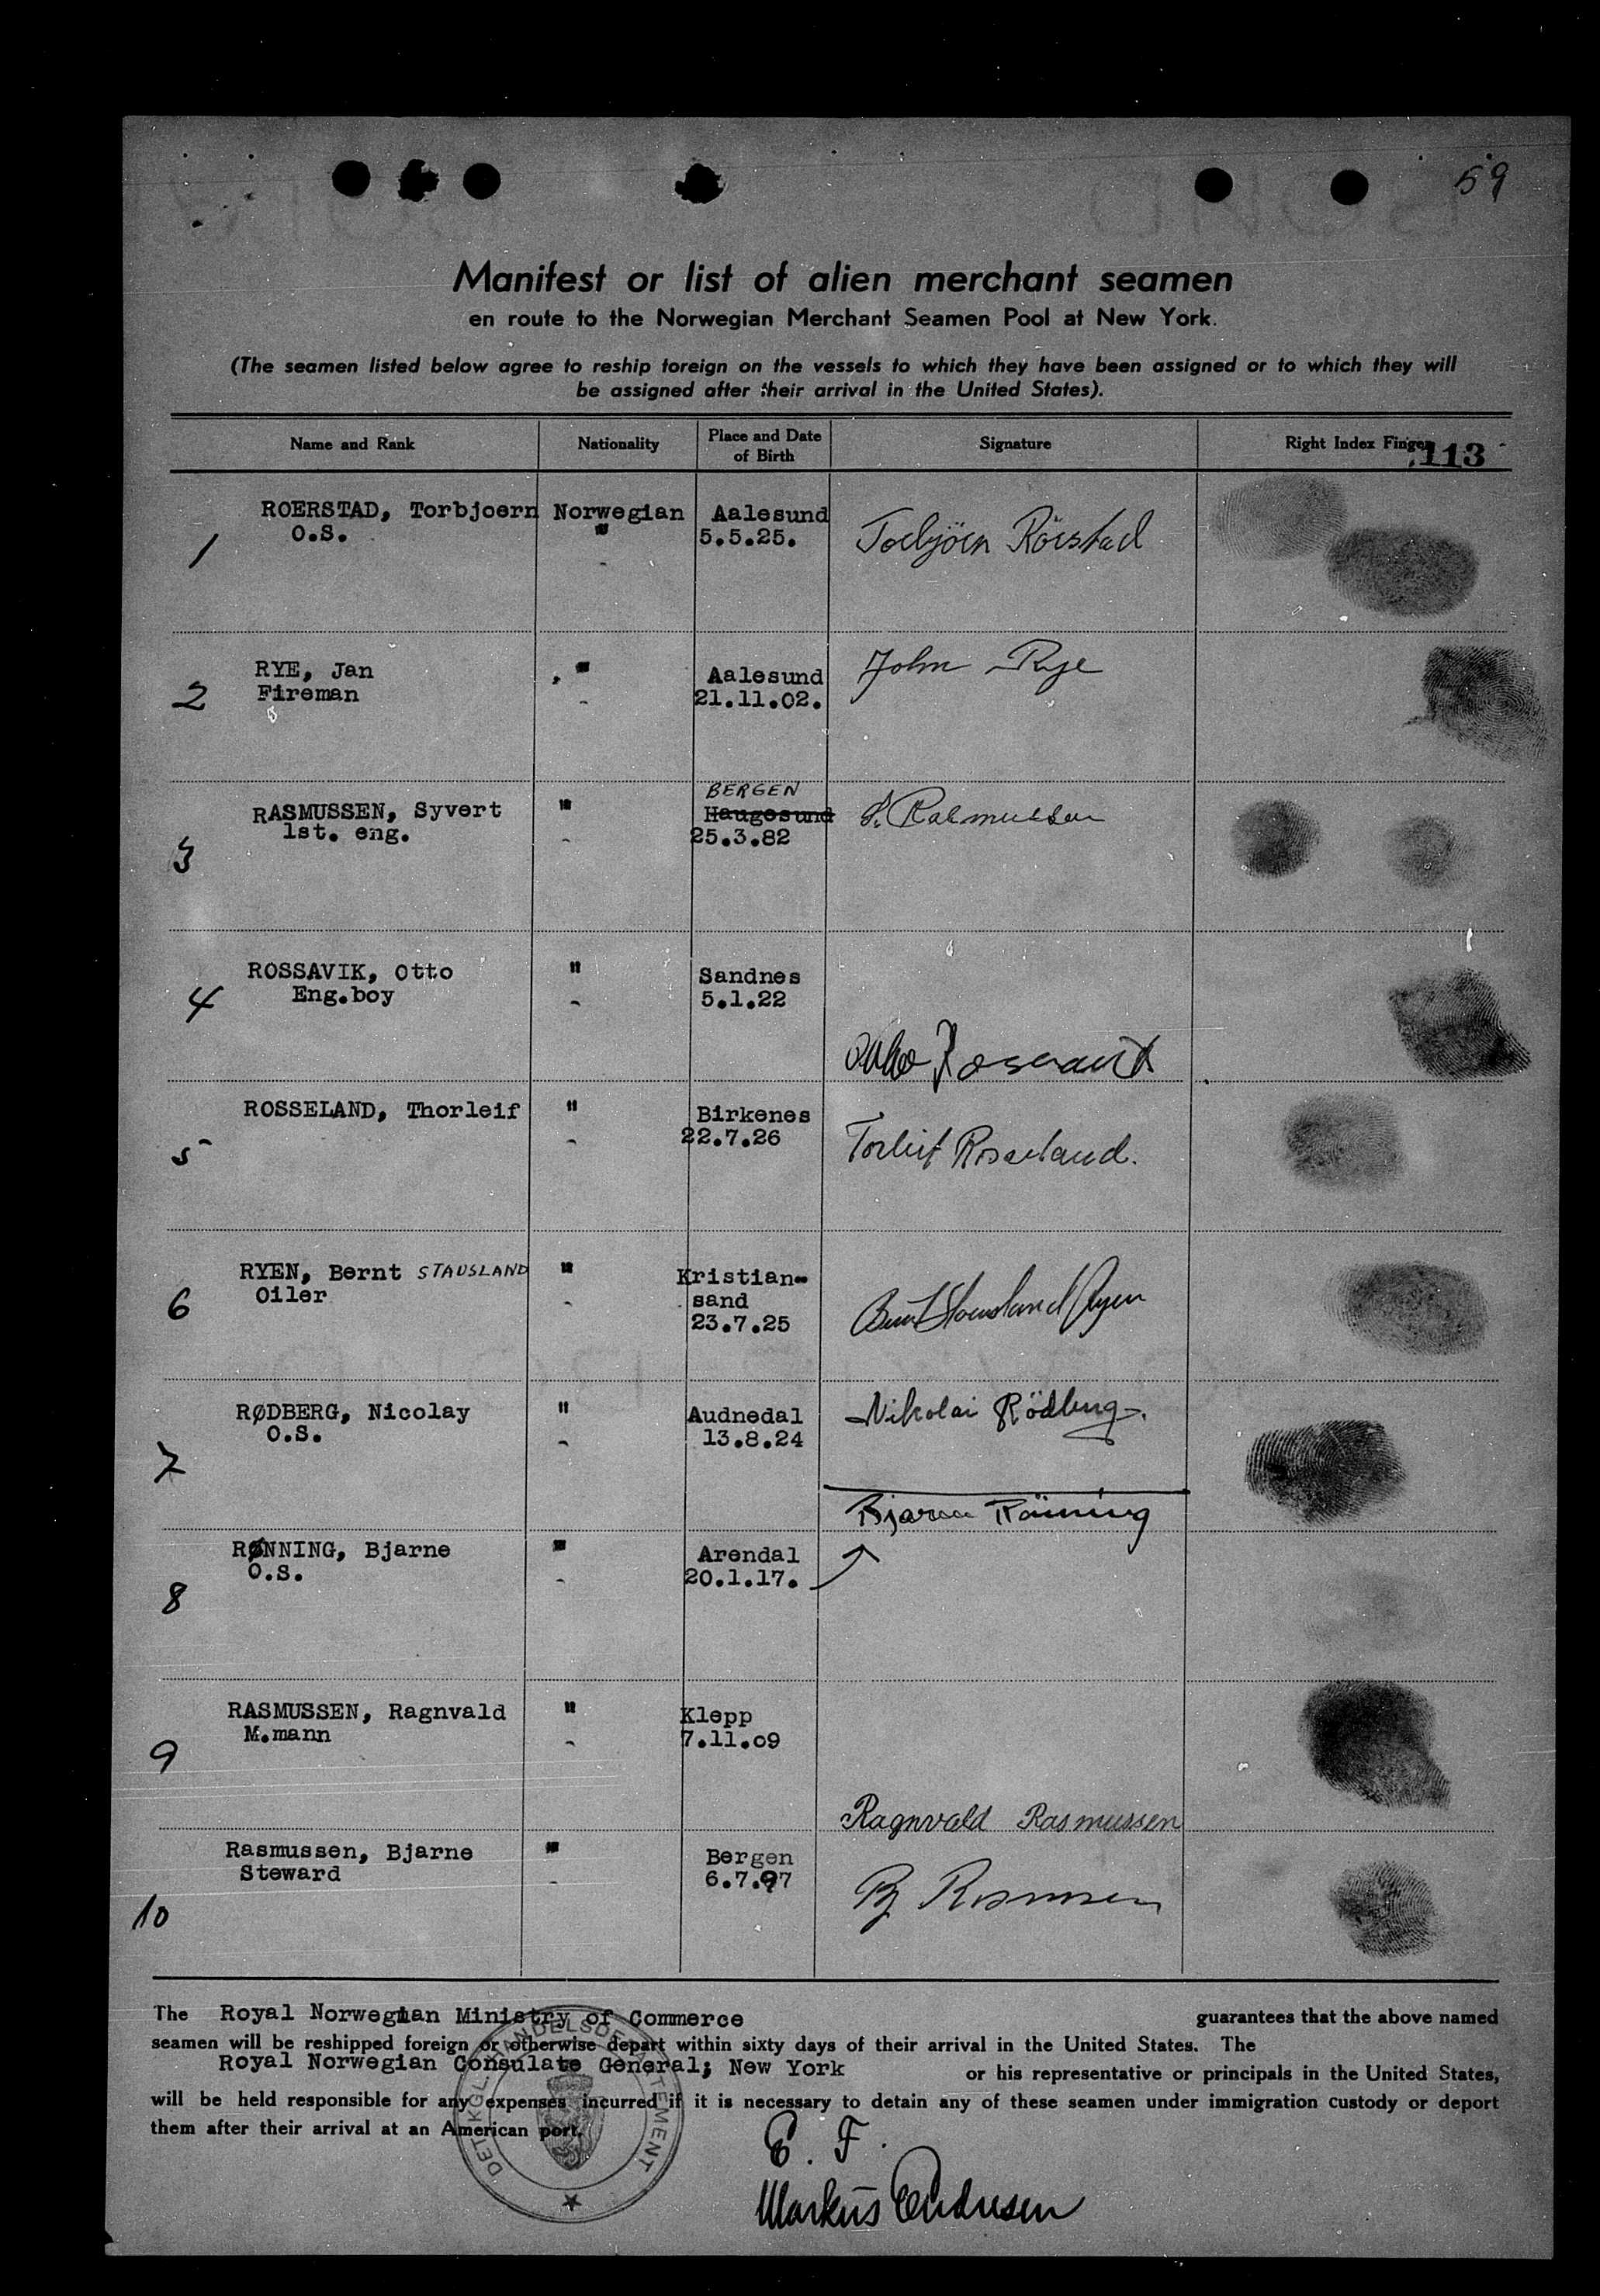 59
Manifest or list of alien merchant seamen
en route to the Norwegian Merchant Seamen Pool at New York.
(The seamen listed below agree to reship foreign on the vessels to which they have been assigned or to which they will
be assigned after their arrival in the United States).
Name and Rank Nationality Place and Date of Birth Signature Right Index Finger
113
1 ROERSTAD, Torbjoern Norwegian Aalesund
O.S. " 5.5.25.
Torbjörn Rörstad
2 RYE, Jan " Aalesund
Fireman 21.11.02.
John Rye
BERGEN
3 RASMUSSEN, Syvert " Haugesund
1st. eng. 25.3.82
S. Rasmussen
4 ROSSAVIK, Otto " Sandnes
Eng.boy 5.1.22
Otto Rossavik
5 ROSSELAND, Thorleif " Birkenes
22.7.26
Torleif Rosseland.
6 RYEN, Bernt STAUSLAND " Kristian-
Oiler sand
23.7.25
Bernt Stausland Ryen
7 RØDBERG, Nicolay " Audnedal
O.S. 13.8.24
Nikolai Rödberg.
Bjarne Rönning
8 RØNNING, Bjarne " Arendal
O.S. 20.1.17.
9 RASMUSSEN, Ragnvald " Klepp
M.mann 7.11.09
Ragnvald Rasmussen
10 Rasmussen, Bjarne " Bergen
Steward 6.7.97
Bj Rasmussen
The Royal Norwegian Ministry of Commerce guarantees that the above named
seamen will be reshipped foreign or otherwise depart within sixty days of their arrival in the United States. The
Royal Norwegian Consulate General; New York or his representative or principals in the United States,
will be held responsible for any expenses incurred if it is necessary to detain any of these seamen under immigration custody or deport
them after their arrival at an American port.
DET KGL. HANDELSDEPARTEMENT
E. F.
Markus Andresen